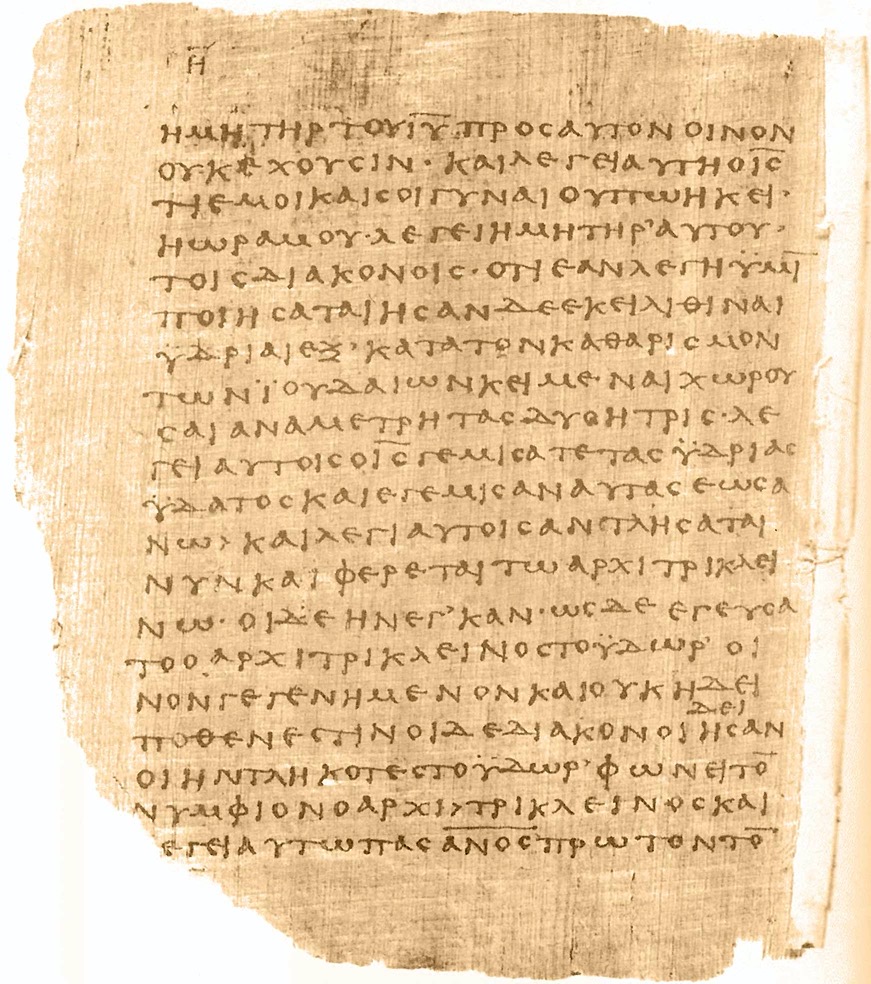 Η̅
ΗΜΗΤΗΡΤΟΥΙ̅Υ̅ΠΡΟϹΑΥΤΟΝΟΙΝΟΝ
ΟΥΚΕΧΟΥϹΙΝ· ΚΑΙΛΕΓΕΙΑΥΤΗΟΙ̅Ϲ̅
ΤΙΕΜΟΙΚΑΙϹΟΙΓΥΝΑΙΟΥΠΩΗΚΕΙ·
ΗΩΡΑΜΟΥ·ΛΕΓΕΙΗΜΗΤΗΡ’ΑΥΤΟΥ·
ΤΟΙϹΔΙΑΚΟΝΟΙϹ·ΟΤΙΕΑΝΛΕΓΗΫΜΙ̅
ΠΟΙΗϹΑΤΑΙΗϹΑΝΔΕΕΚΕΙΛΙΘΙΝΑΙ
ΫΔΡΙΑΙΕΞ’ΚΑΤΑΤΟΝΚΑΘΑΡΙϹΜΟΝ
ΤΩΝΪΟΥΔΑΙΩΝΚΕΙΜΕ·ΝΑΙΧΩΡΟΥ
ϹΑΙΑΝΑΜΕΤΡΗΤΑϹΔΥΟΗΤΡΙϹ·ΛΕ
ΓΕΙΑΥΤΟΙϹΟΙ̅Ϲ̅ΓΕΜΙϹΑΤΕΤΑϹΫΔΡΙΑϹ
ΫΔΑΤΟϹΚΑΙΕΓΕΜΙϹΑΝΑΥΤΑϹΕΩϹΑ
ΝΩ› ΚΑΙΛΕΓΙΑΥΤΟΙϹΑΝ’ΤΛΗϹΑΤΑΙ
ΝΥΝΚΑΙΦΕΡΕΤΑΙΤΩΑΡΧΙΤΡΙΚΛΕΙ
ΝΩ· ΟΙΔΕΗΝΕΓ’ΚΑΝ·ΩϹΔΕΕΓΕΥϹΑ
ΤΟΟΑΡΧΙΤΡΙΚΛΕΙΝΟϹΤΟΫΔΩΡ’ ΟΙ
ΝΟΝΓΕΓΕΝΗΜΕΝΟΝΚΑΙΟΥΚΗΔΕΙ
ΔΕΙ
ΠΟΘΕΝΕϹΤΙΝΟΙΔΕΔΙΑΚΟΝΟΙΗϹΑΝ
ΟΙΗΝΤΛΗΚΟΤΕϹΤΟΫΔΩΡ’ΦΩΝΕΙΤΟ̅
ΝΥΜΦΙΟΝΟΑΡΧΙ›ΤΡΙΚΛΕΙΝΟϹΚΑΙ
ΕΓΕΙΑΥΤΩΠΑϹΑ̅Ν̅Ο̅Ϲ̅ΠΡΩΤΟΝΤΟ̅